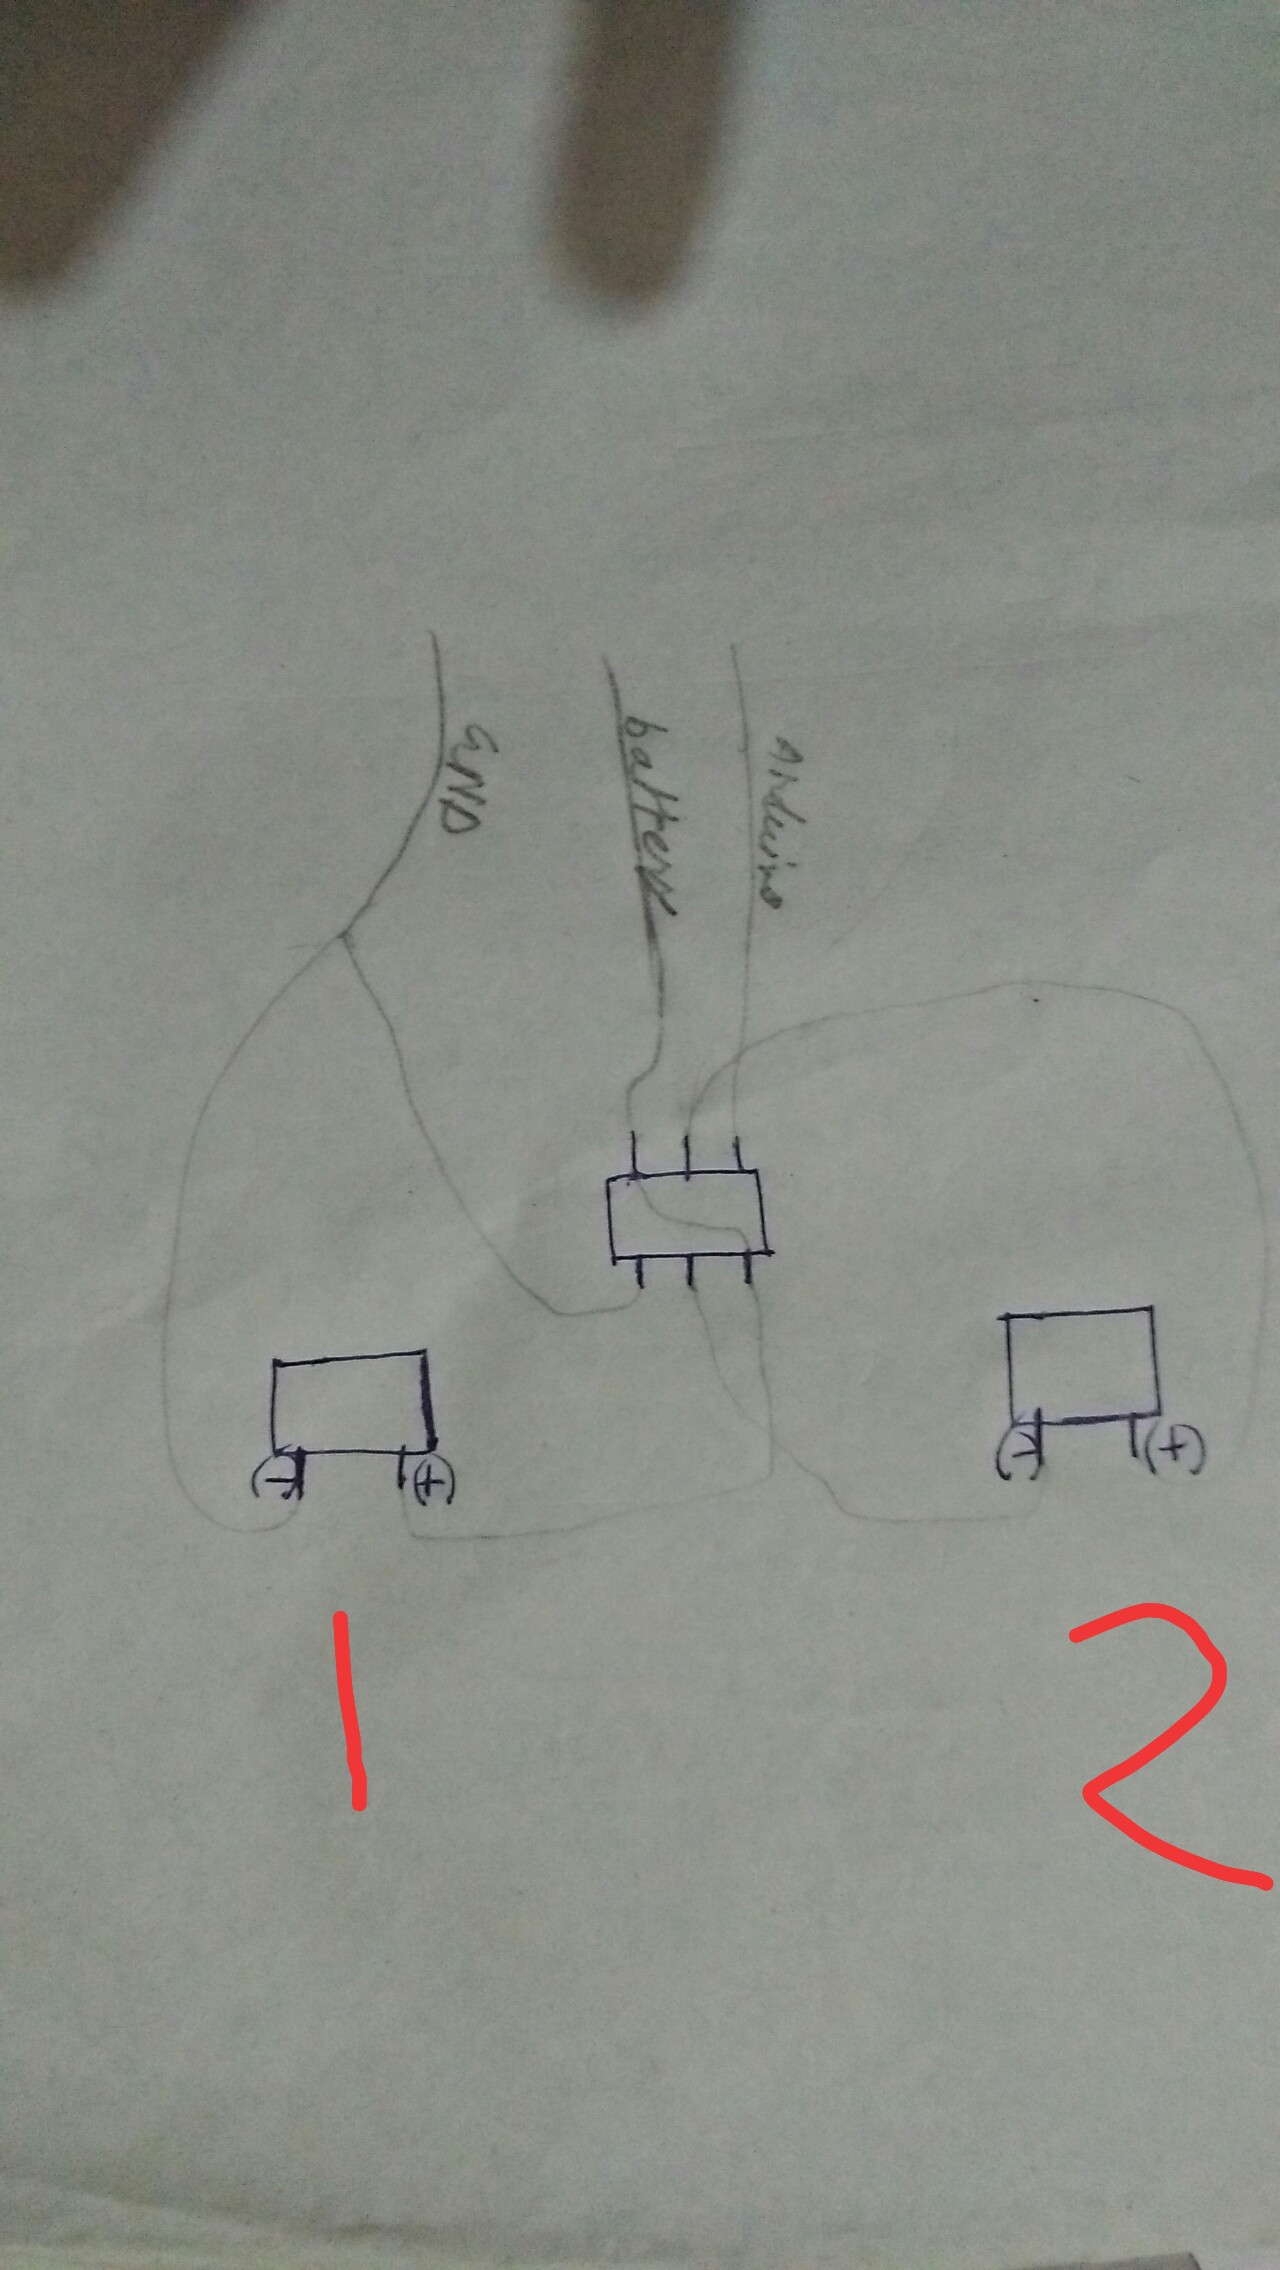 GND
battery
arduino
(-) (+)
(-) (+)
1
2